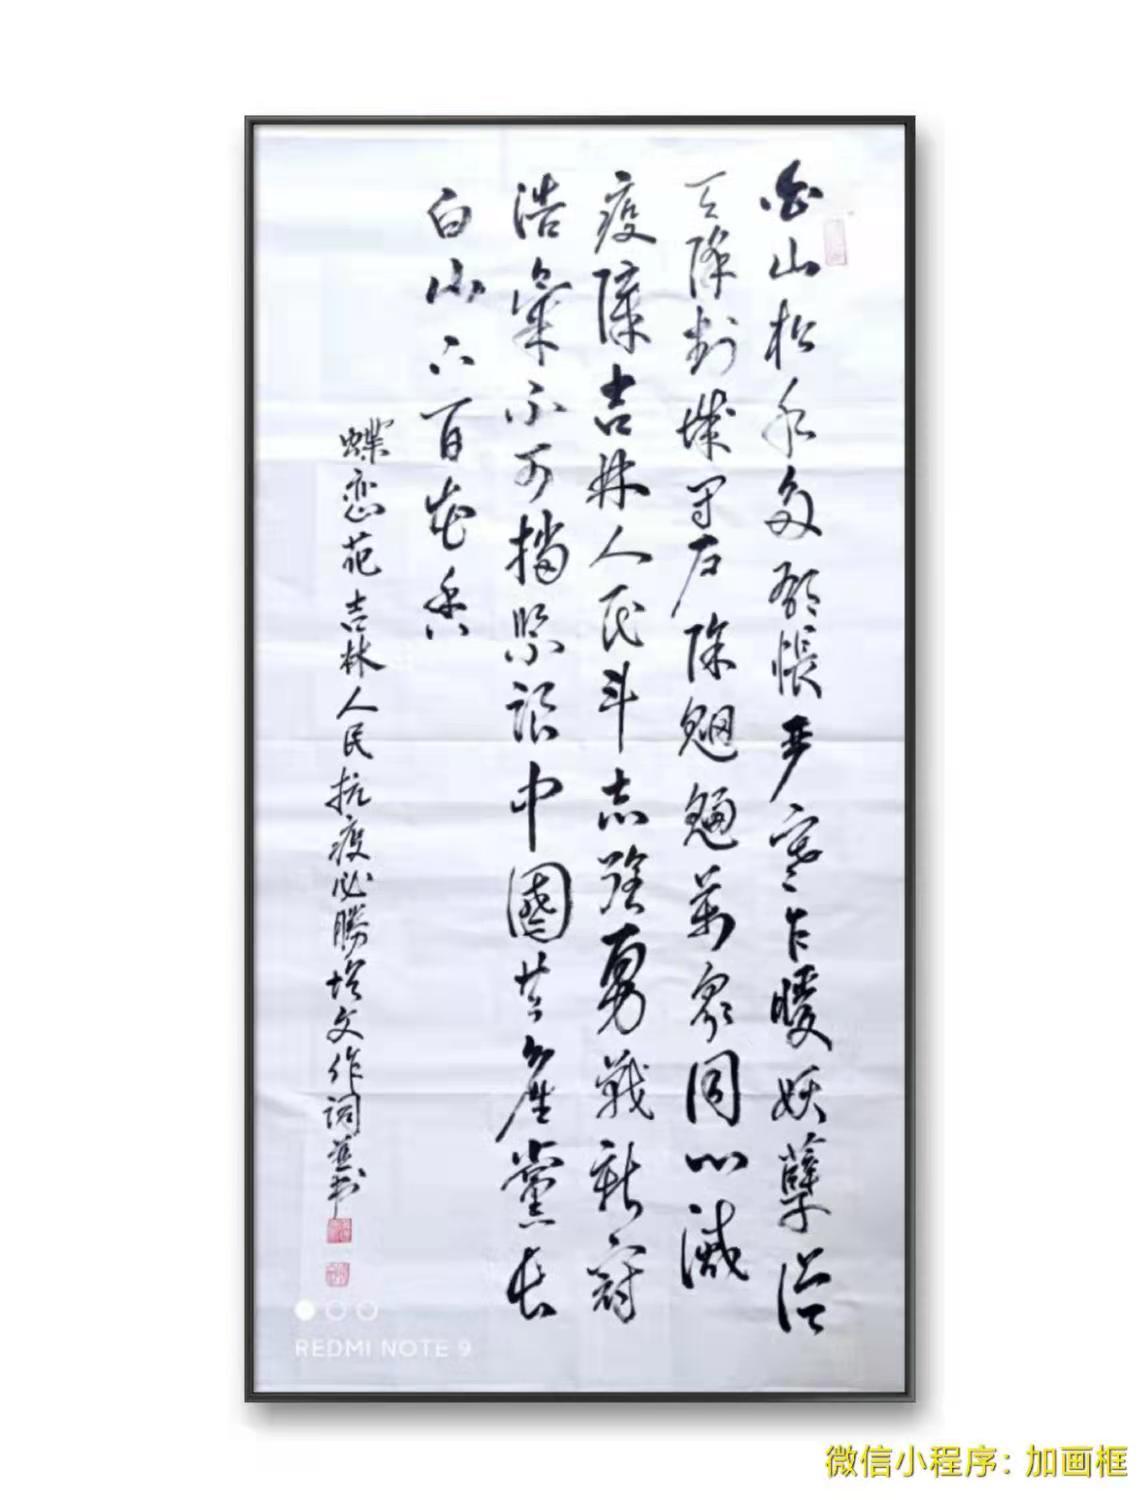 白山松水多惆怅步寒乍暖妖孽从
天降封城守户除魍魉万众同心灭
疫障吉林人民斗志强勇战新冠
浩气不可挡紧跟中国共产党长
白山下百花香
蝶恋花吉林人民抗疫必胜培文作词并书
REDMI NOTE 9
微信小程序：加画框